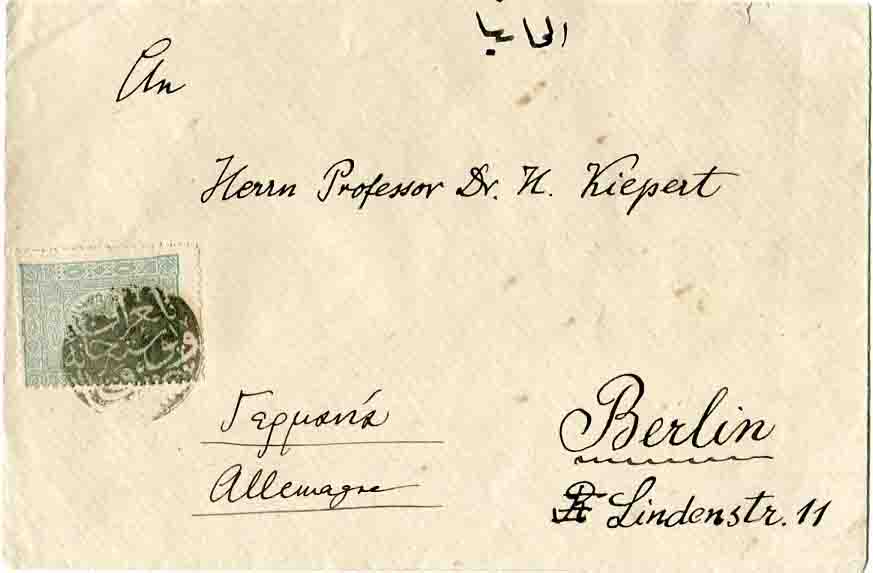 المانيا
An
Herrn Professor Dr. H. Kiepert
Γερμανία
Allemagne
Berlin
Lindenstr. 11